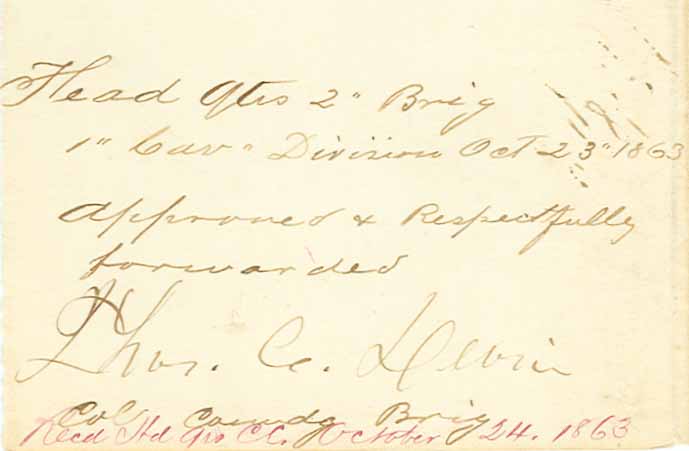 Head Qtrs 2" Brig
1" Cav" Division Oct 23" 1863
Approved & Respectfully
forwarded
Thos. C. Devin
Col Comdg Brig
Recd Hd Qrs C.C. October 24. 1863